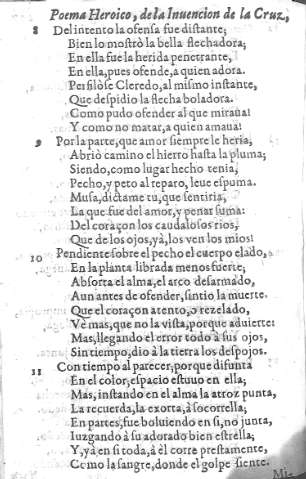 Poema Heroico, de la Inuencion de la Cruz,
8 Del intento la ofensa fue distante;
Bien lo mostrò la bella flechadora;
En ella fue la herida penetrante,
En ella, pues ofende, a quien adora.
Perfilòse Cleredo, al mismo instante,
Que despidio la flecha boladora.
Como pudo ofender al que miraua!
Y como no matar, a quien amaua!
9 Por la parte, que amor siempre le heria,
Abriò camino el hierro hasta la pluma;
Siendo, como lugar hecho tenia,
Pecho, y peto al reparo, leue espuma.
Musa, dictame tu, que sentiria,
La que fue del amor, y penar suma:
Del coraçon los caudalosos rios,
Que de los ojos, yà, los ven los mios!
10 Pendiente sobre el pecho el cuerpo elado,
En la planta librada menos fuerte;
Absorta el alma, el arco desarmado,
Aun antes de ofender, sintio la muerte.
Que el coraçon atento, o rezelado,
Ve mas, que no la vista, porque aduierte:
Mas, llegando el error todo à sus ojos,
Sin tiempo, dio à la tierra los despojos.
11 Con tiempo al parecer; porque difunta
En el color; espacio estuuo en ella;
Mas, instando en el alma la atroz punta,
La recuerda, la exorta, à socorrella;
En partes, fue boluiendo en si, no junta,
Iuzgando à su adorado bien estrella;
Y, yà en si toda, à èl corre prestamente,
Como la sangre, donde el golpe siente.